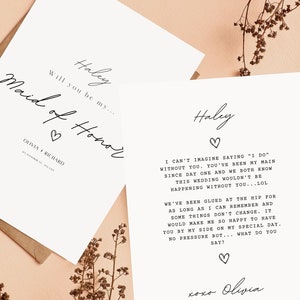 Haley
Will you be my...
Maid of Honor
OLIVIA & RICHARD
Haley
I CAN'T IMAGINE SAYING "I DO"
WITHOUT YOU. YOU'VE BEEN MY MAIN
SINCE DAY ONE AND WE BOTH KNOW
THIS WEDDING WOULDN'T BE
HAPPENING WITHOUT YOU...LOL
WE'VE BEEN GLUED AT THE HIP FOR
AS LONG AS I CAN REMEMBER AND
SOME THINGS DON'T CHANGE. IT
WOULD MAKE ME SO HAPPY TO HAVE
YOU BY MY SIDE ON MY SPECIAL DAY.
NO PRESSURE BUT... WHAT DO YOU
SAY?
xoxo Olivia